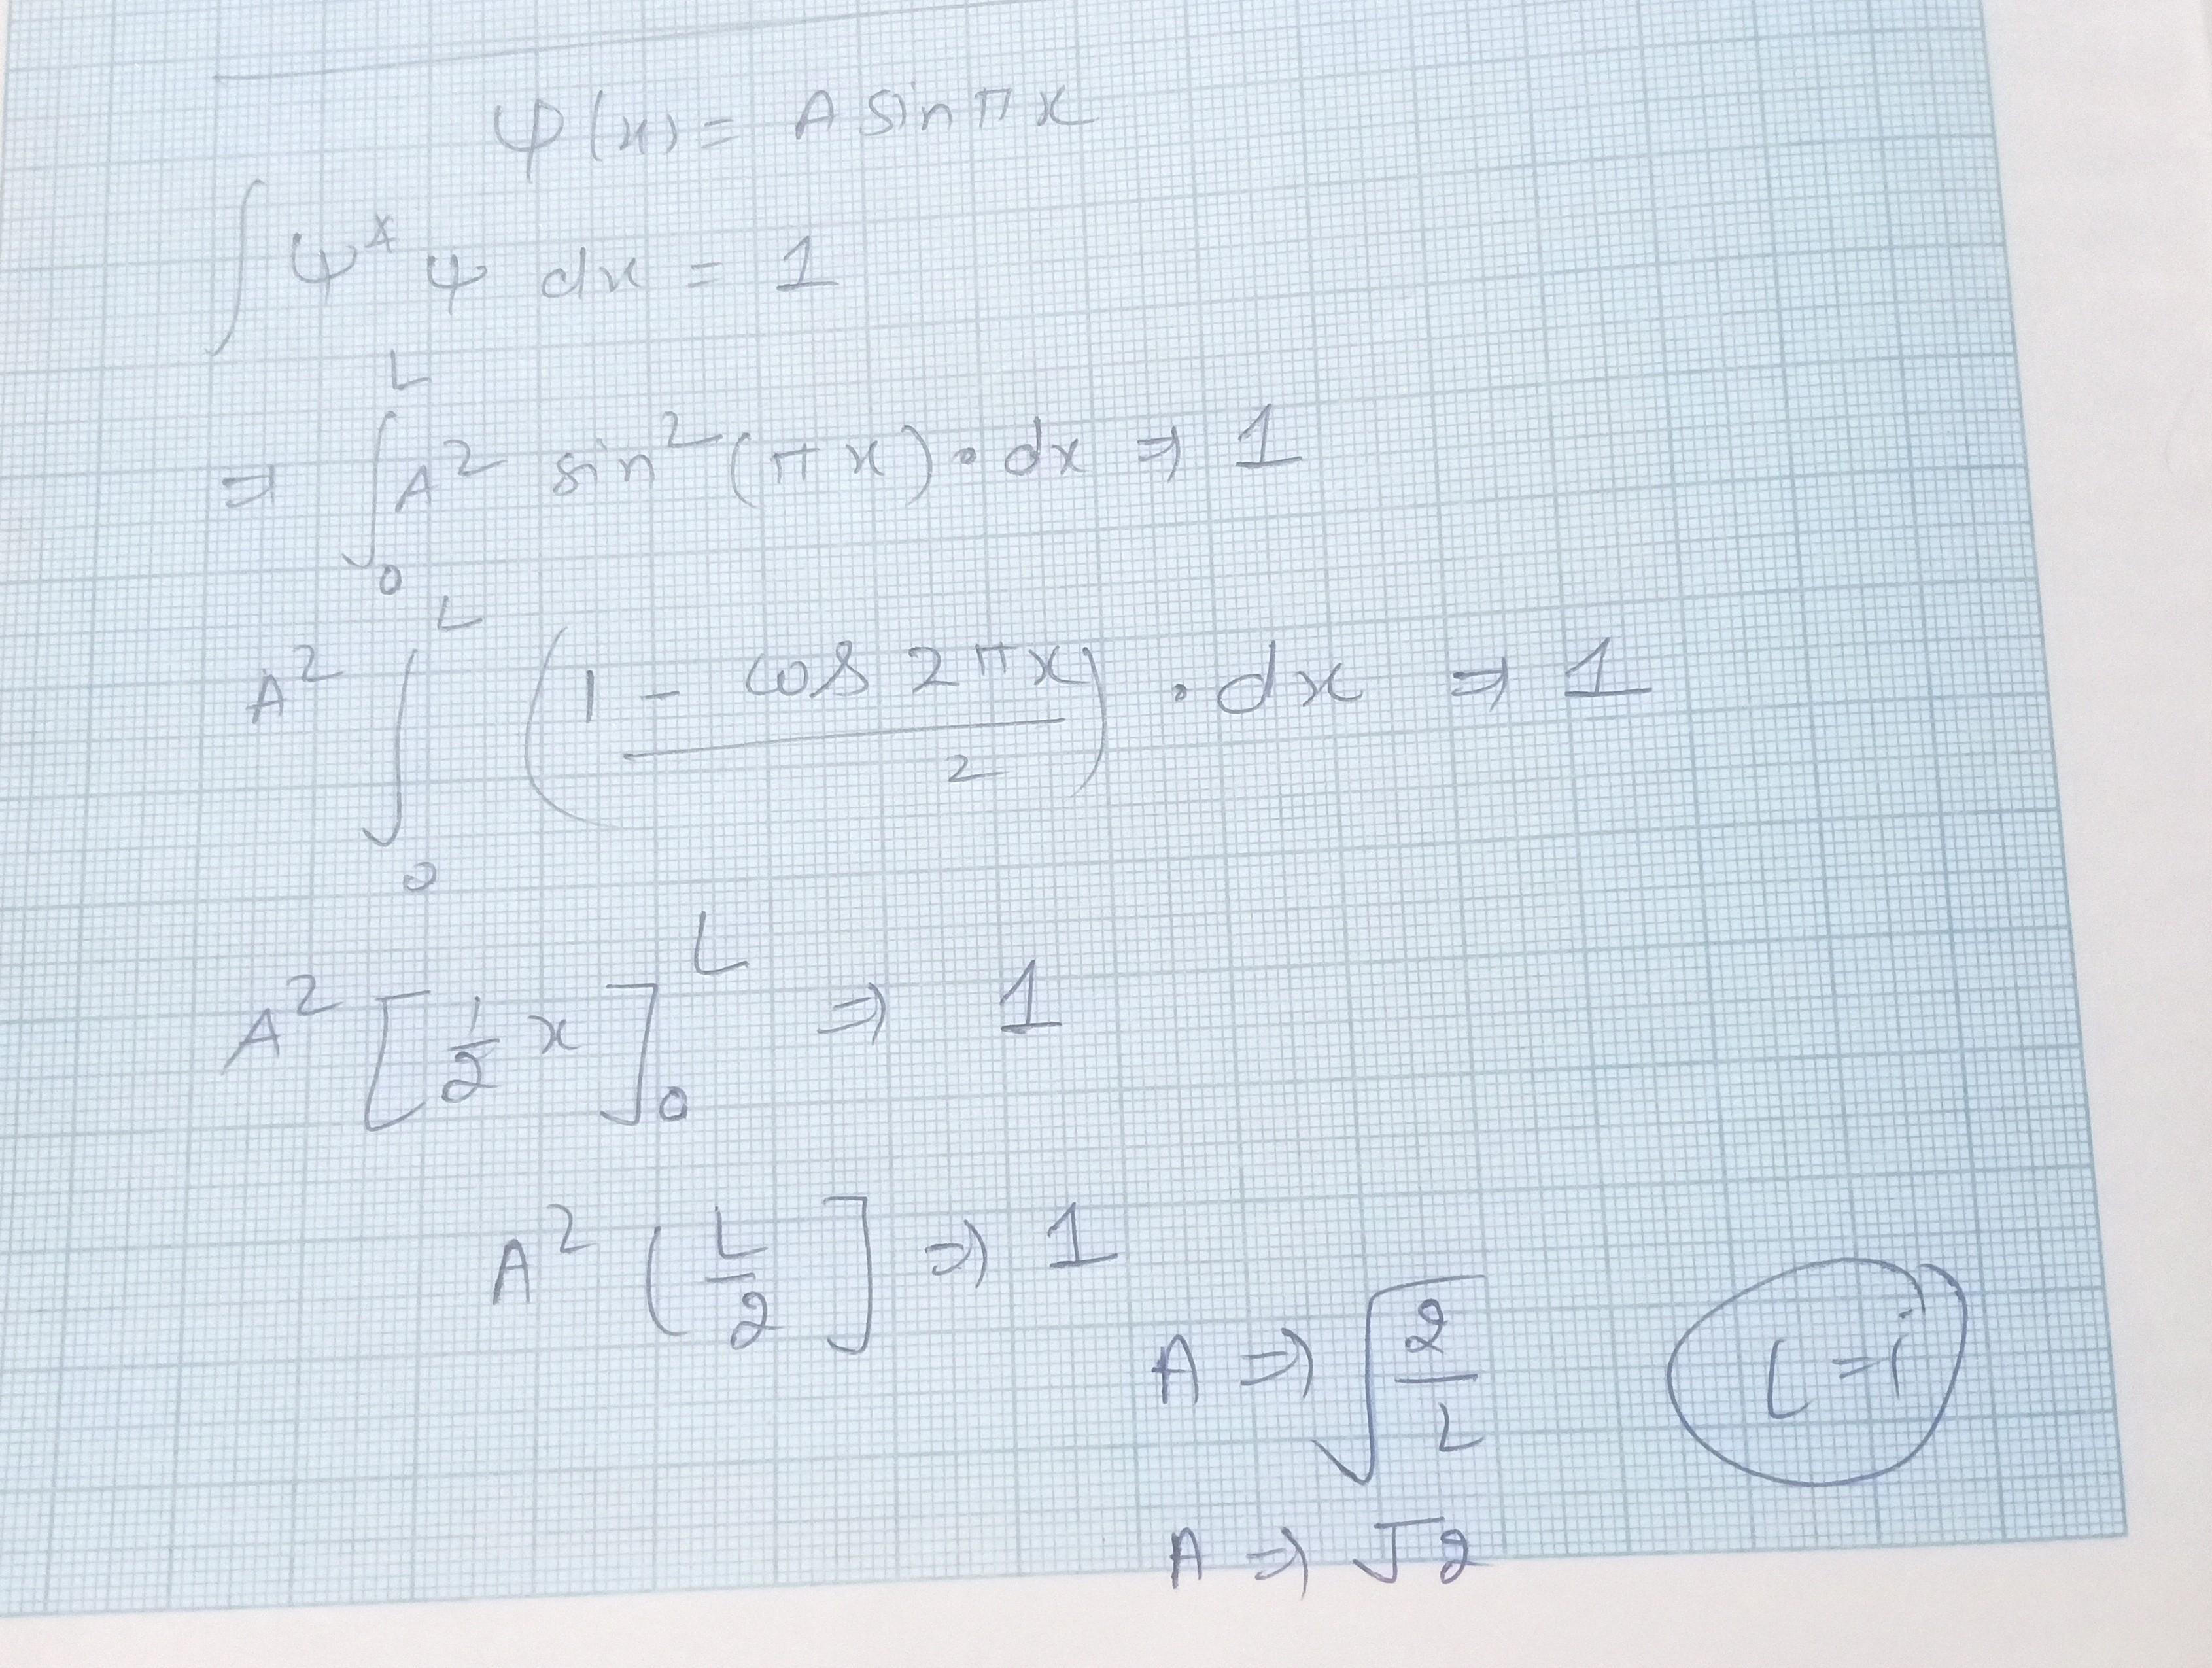 φ(x) = A sin πx
∫ ψ* ψ dx = 1
⇒ ∫₀ᴸ A² sin² (πx) • dx ⇒ 1
A² ∫₀ᴸ (1 - cos 2πx / 2) • dx ⇒ 1
A² [1/2 x]₀ᴸ ⇒ 1
A² (L/2] ⇒ 1
A ⇒ √(2/L) L = 1
A ⇒ √2